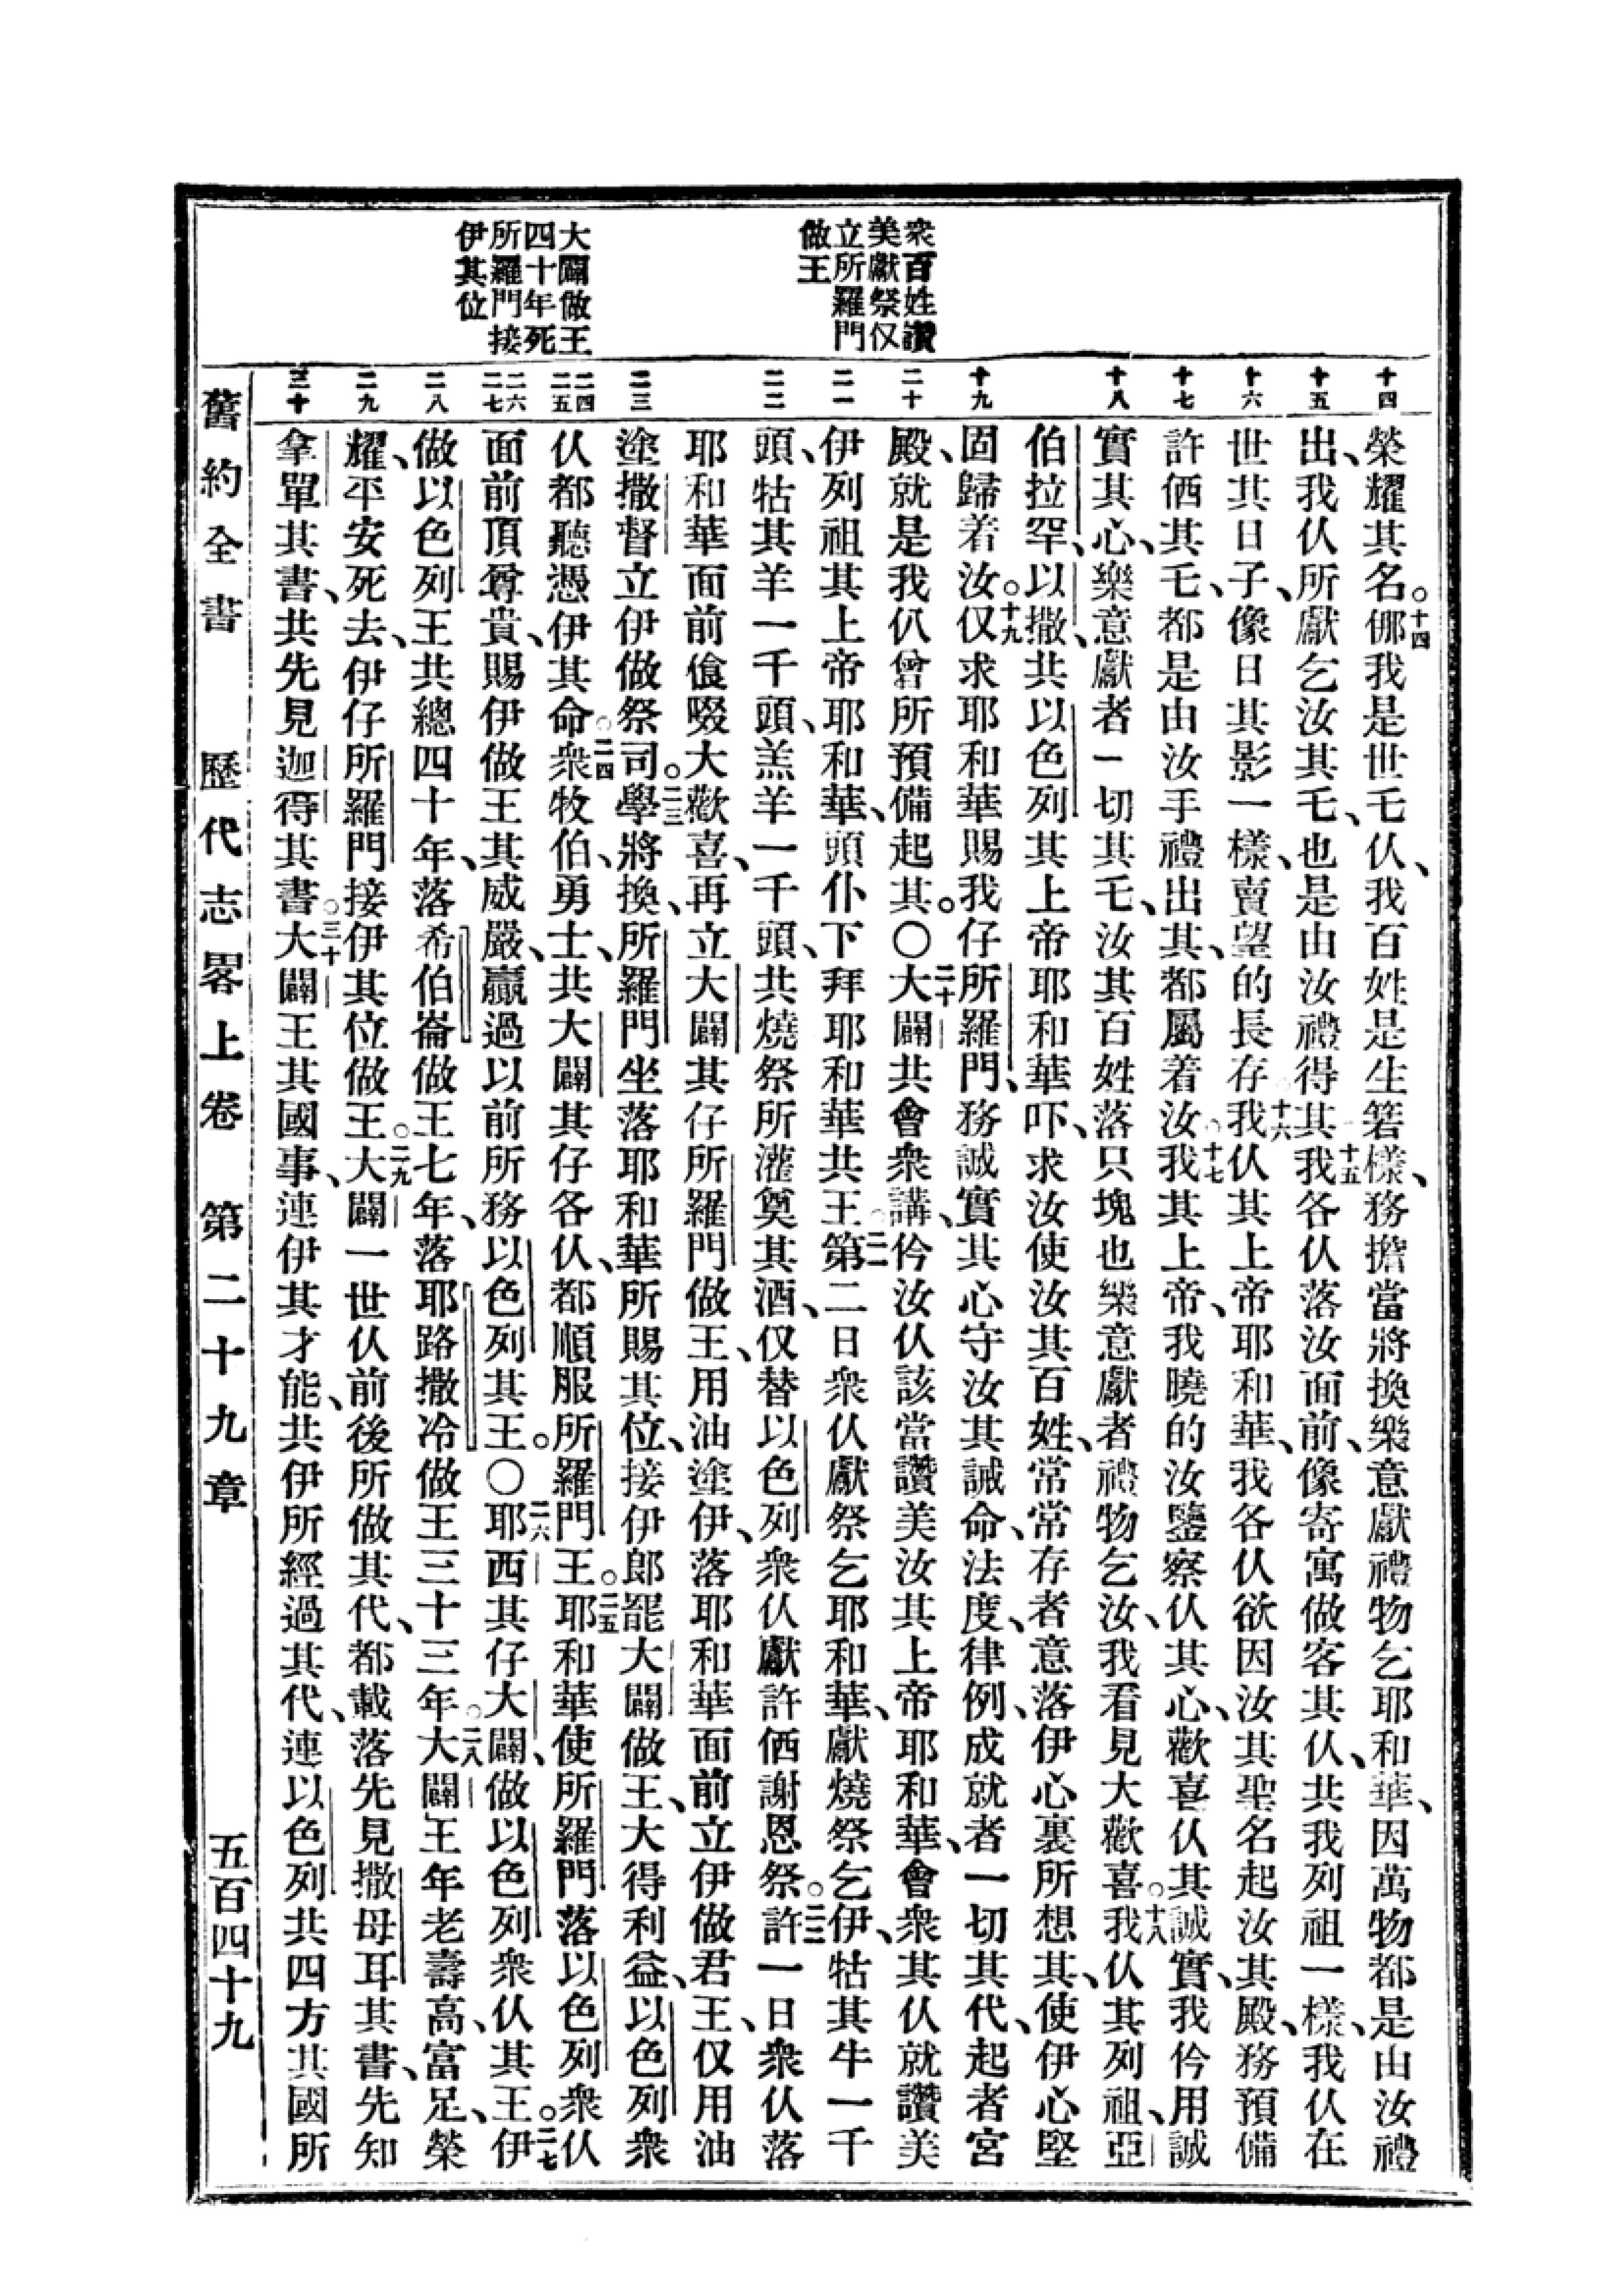 衆百姓讚
美獻祭仅
立所羅門
做王
大闢做王
四十年死
所羅門接
伊其位
十四
十五
十六
十七
十八
十九
二十
二一
二二
二三
二四
二五
二六
二七
二八
二九
三十
榮耀其名。十四 㑚我是世乇仈、我百姓是生箬樣、務擔當將換樂意獻禮物乞耶和華、因萬物都是由汝禮
出、我仈所獻乞汝其乇、也是由汝禮得其。十五 我各仈落汝面前、像寄寓做客其仈、共我列祖一樣、我仈在
世其日子、像日其影一樣、賣望的長存。十六 我仈其上帝耶和華、我各仈欲因汝其聖名起汝其殿、務預備
許𠇼其乇、都是由汝手禮出其、都屬着汝。十七 我其上帝、我曉的汝鑒察仈其心、歡喜仈其誠實、我仱用誠
實其心、樂意獻者一切其乇、汝其百姓落只塊也樂意獻者禮物乞汝、我看見大歡喜。十八 我仈其列祖、亞
伯拉罕、以撒、共以色列其上帝耶和華吓、求汝使汝其百姓、常常存者意落伊心裏所想其、使伊心堅
固歸着汝。十九 仅求耶和華賜我仔所羅門、務誠實其心守汝其誡命、法度、律例、成就者一切其代、起者宮
殿、就是我仈曾所預備起其。〇二十 大闢共會衆講、仱汝仈該當讚美汝其上帝耶和華、會衆其仈就讚美
伊列祖其上帝耶和華、頭仆下拜耶和華共王。二一 第二日衆仈獻祭乞耶和華、獻燒祭乞伊、牯其牛一千
頭、牯其羊一千頭、羔羊一千頭、共燒祭所灌奠其酒、仅替以色列衆仈獻許𠇼謝恩祭。二二 許一日衆仈落
耶和華面前食啜大歡喜、再立大闢其仔所羅門做王、用油塗伊、落耶和華面前立伊做君王、仅用油
塗撒督立伊做祭司。二三 學將換、所羅門坐落耶和華所賜其位、接伊郎罷大闢做王、大得利益、以色列衆
仈都聽憑伊其命。二四 衆牧伯、勇士、共大闢其仔各仈、都順服所羅門王。二五 耶和華使所羅門落以色列衆仈
面前頂尊貴、賜伊做王其威嚴、贏過以前所務以色列其王。〇二六 耶西其仔大闢、做以色列衆仈其王。二七 伊
做以色列王共總四十年、落希伯崙做王七年、落耶路撒冷做王三十三年。二八 大闢王年老壽高、富足、榮
耀、平安死去、伊仔所羅門接伊其位做王。二九 大闢一世仈前後所做其代、都載落先見撒母耳其書、先知
拿單其書、共先見迦得其書。三十 大闢王其國事、連伊其才能、共伊所經過其代、連以色列共四方其國所
舊約全書 歷代志畧上卷 第二十九章 五百四十九